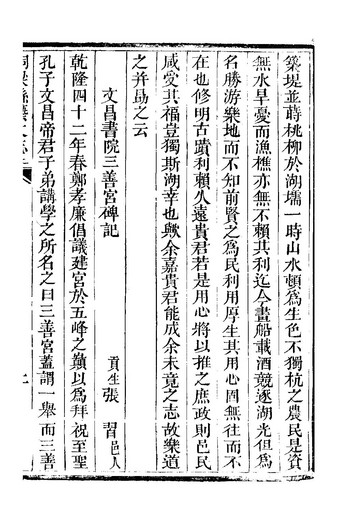 築堤並蒔桃柳於湖壖一時山水頓為生色不獨杭之農民是資
無水旱憂而漁樵亦無不賴其利迄今畫船載酒競逐湖光但為
名勝游樂地而不知前賢之為民利用厚生其用心固無往而不
在也修明古蹟利賴人遠貴君若是用心將以推之庶政則邑民
咸受其福豈獨斯湖幸也歟余嘉貴君能成余未竟之志故樂道
之并勗之云
文昌書院三善宮碑記
貢生張習邑人
乾隆四十二年春鄭孝廉倡議建宮於五峰之巔以為拜祝至聖
孔子文昌帝君子弟講學之所名之曰三善宮蓋謂一舉而三善